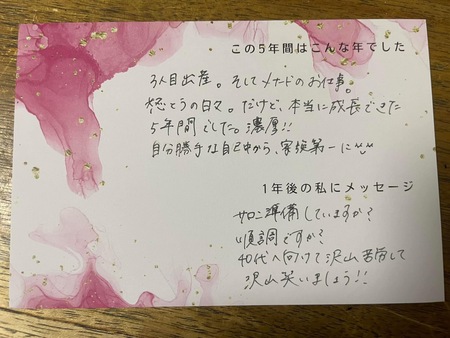 この5年間はこんな年でした
3人目出産。そしてメナードのお仕事。
怒とうの日々。だけど、本当に成長できた
5年間でした。濃厚!!
自分勝手な自己中から、家族第一に
1年後の私にメッセージ
サロン準備していますか?
順調ですか?
40代へ向けて沢山苦労して
沢山笑いましょう!!